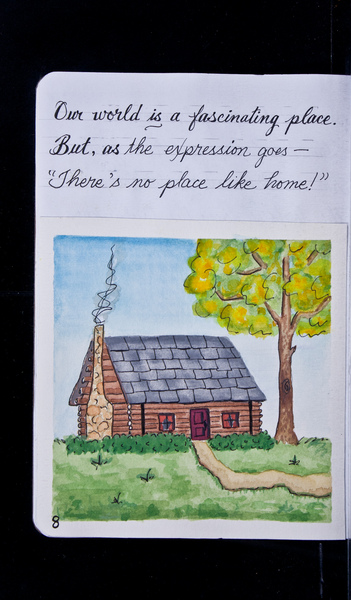 Our world is a fascinating place.
But, as the expression goes —
"There's no place like home!"
8